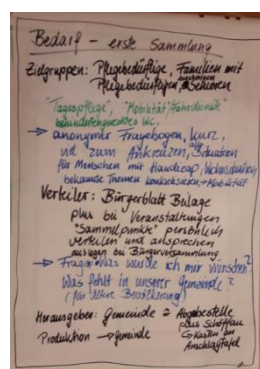 Bedarf - erste Sammlung
Zielgruppen: Pflegebedürftige, Familien mit
Pflegebedürftigen, Senioren
"Tagespflege", "Mobilität/Fahrdienste"
behindertengerechtes WC,
→ anonymer Fragebogen, kurz,
nd zum Ankreuzen, Situation
für Menschen mit Handicap,
bekannte Themen Mobilität
Verteiler: Bürgerblatt Beilage
plus bei Veranstaltungen
"Sammelpunkte" persönlich
verteilen und ansprechen
auslegen bei Bürgerversammlung
→ Frage: Was würde ich mir wünschen?
Was fehlt in unserer Gemeinde?
(für ältere Bevölkerung)
Herausgeber: Gemeinde = Abgabestelle
plus Schöffau
Karten an
Anschlagtafel
Produktion → Gemeinde